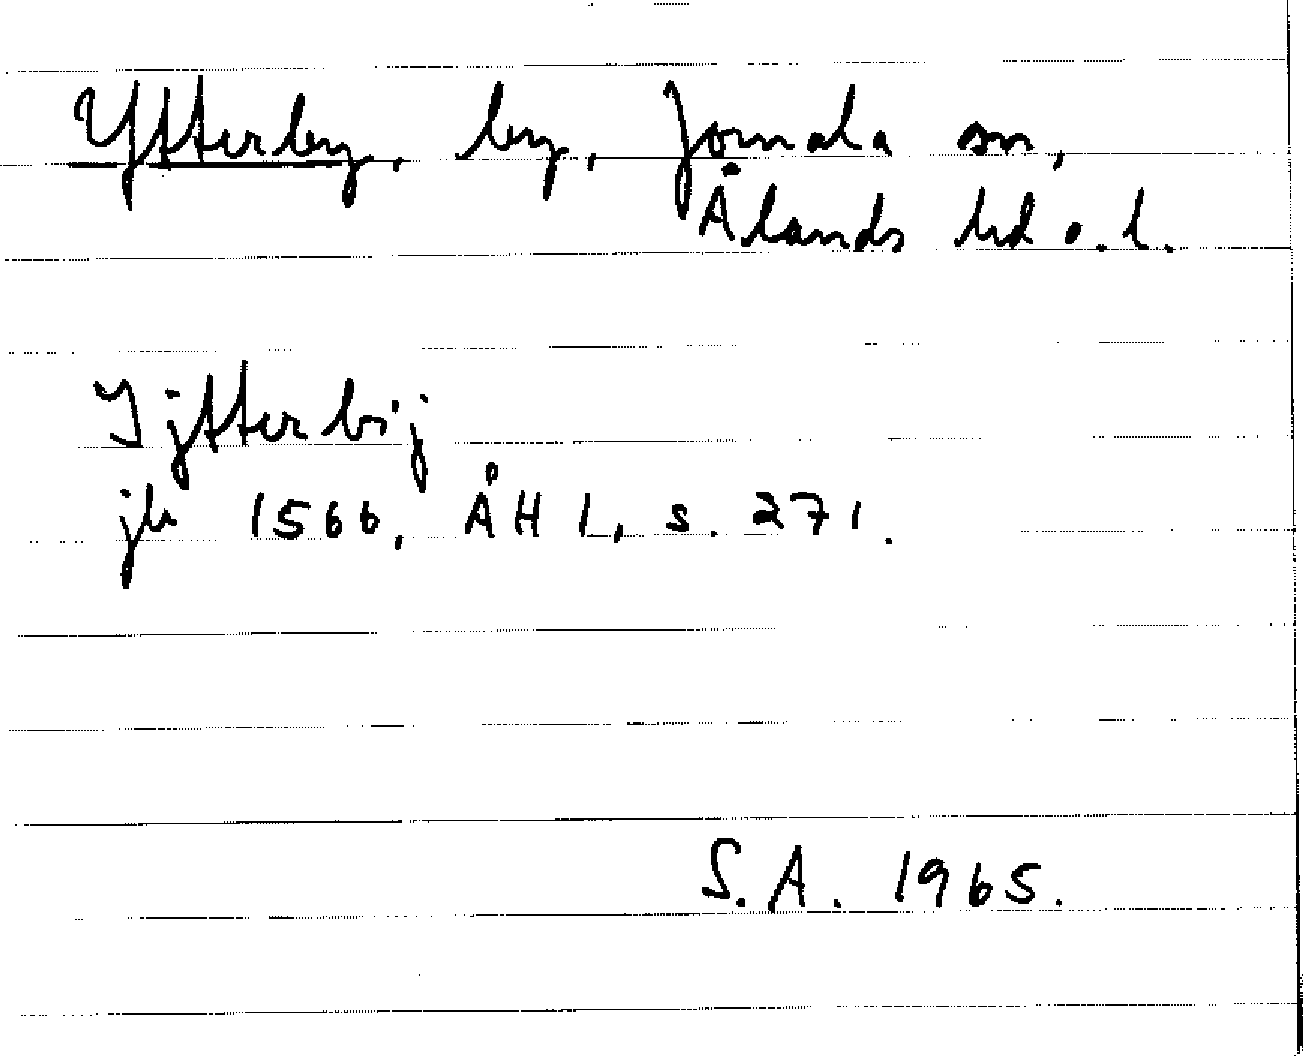 Ytterby, by, Jomala sn,
Ålands hd o. l.
Ijtterbij
jb 1566, ÅH 1, s. 271.
S.A. 1965.